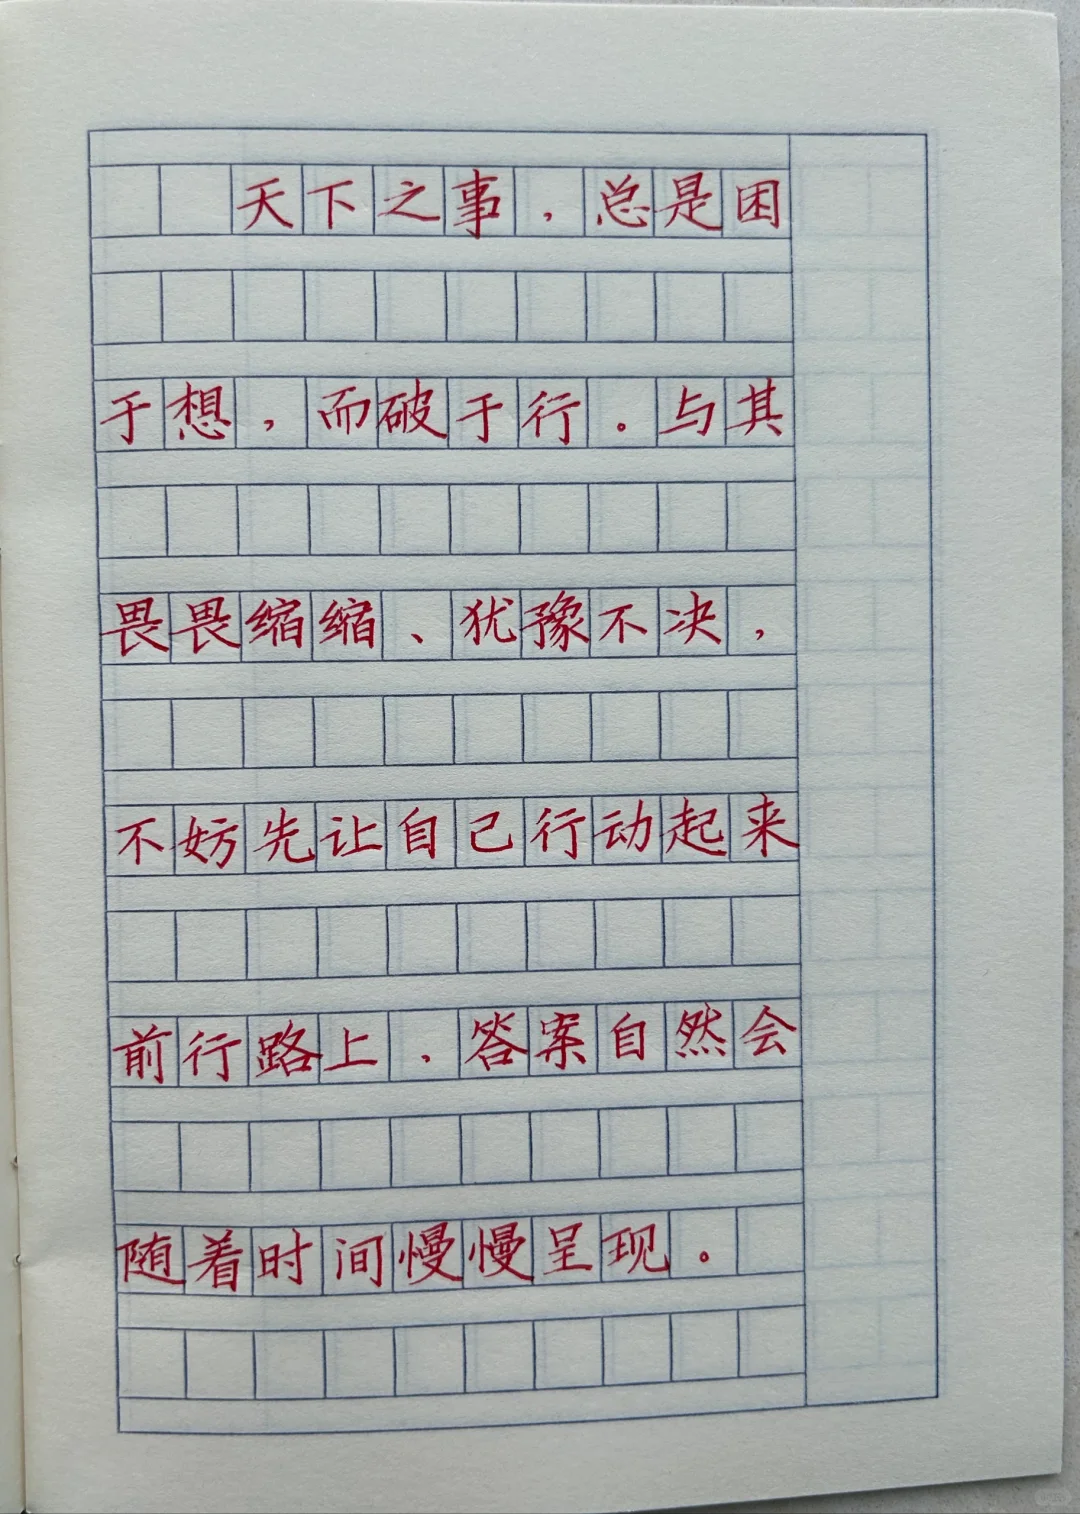 天下之事，总是困
于想，而破于行。与其
畏畏缩缩、犹豫不决，
不妨先让自己行动起来
前行路上、答案自然会
随着时间慢慢呈现。